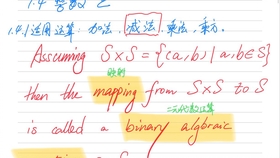 1.4.1 运用运算: 加法, 减法, 乘法, 乘方.
Assuming S×S = {(a,b) | a,b∈S}
then the mapping from S×S to S
二元代数运算
is called a binary algebraic